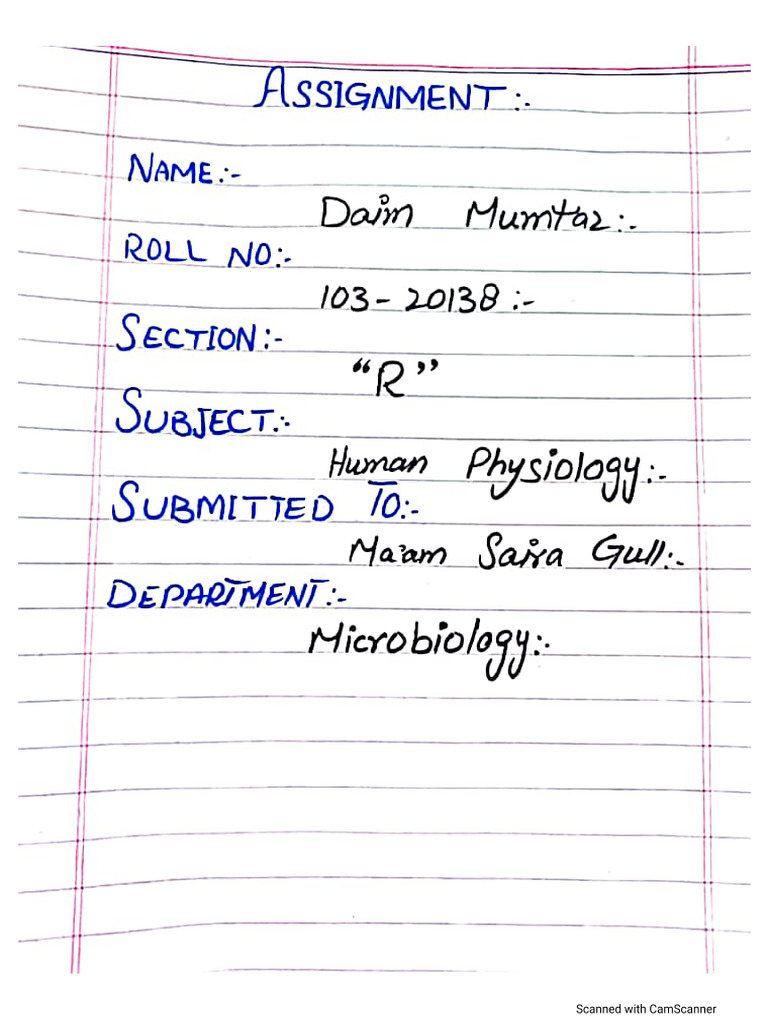 ASSIGNMENT:-
NAME:-
Daim Mumtaz:-
ROLL NO:-
103-20138:-
SECTION:-
"R"
SUBJECT:-
Human Physiology:-
SUBMITTED TO:-
Ma'am Saira Gull:-
DEPARTMENT:-
Microbiology:-
Scanned with CamScanner